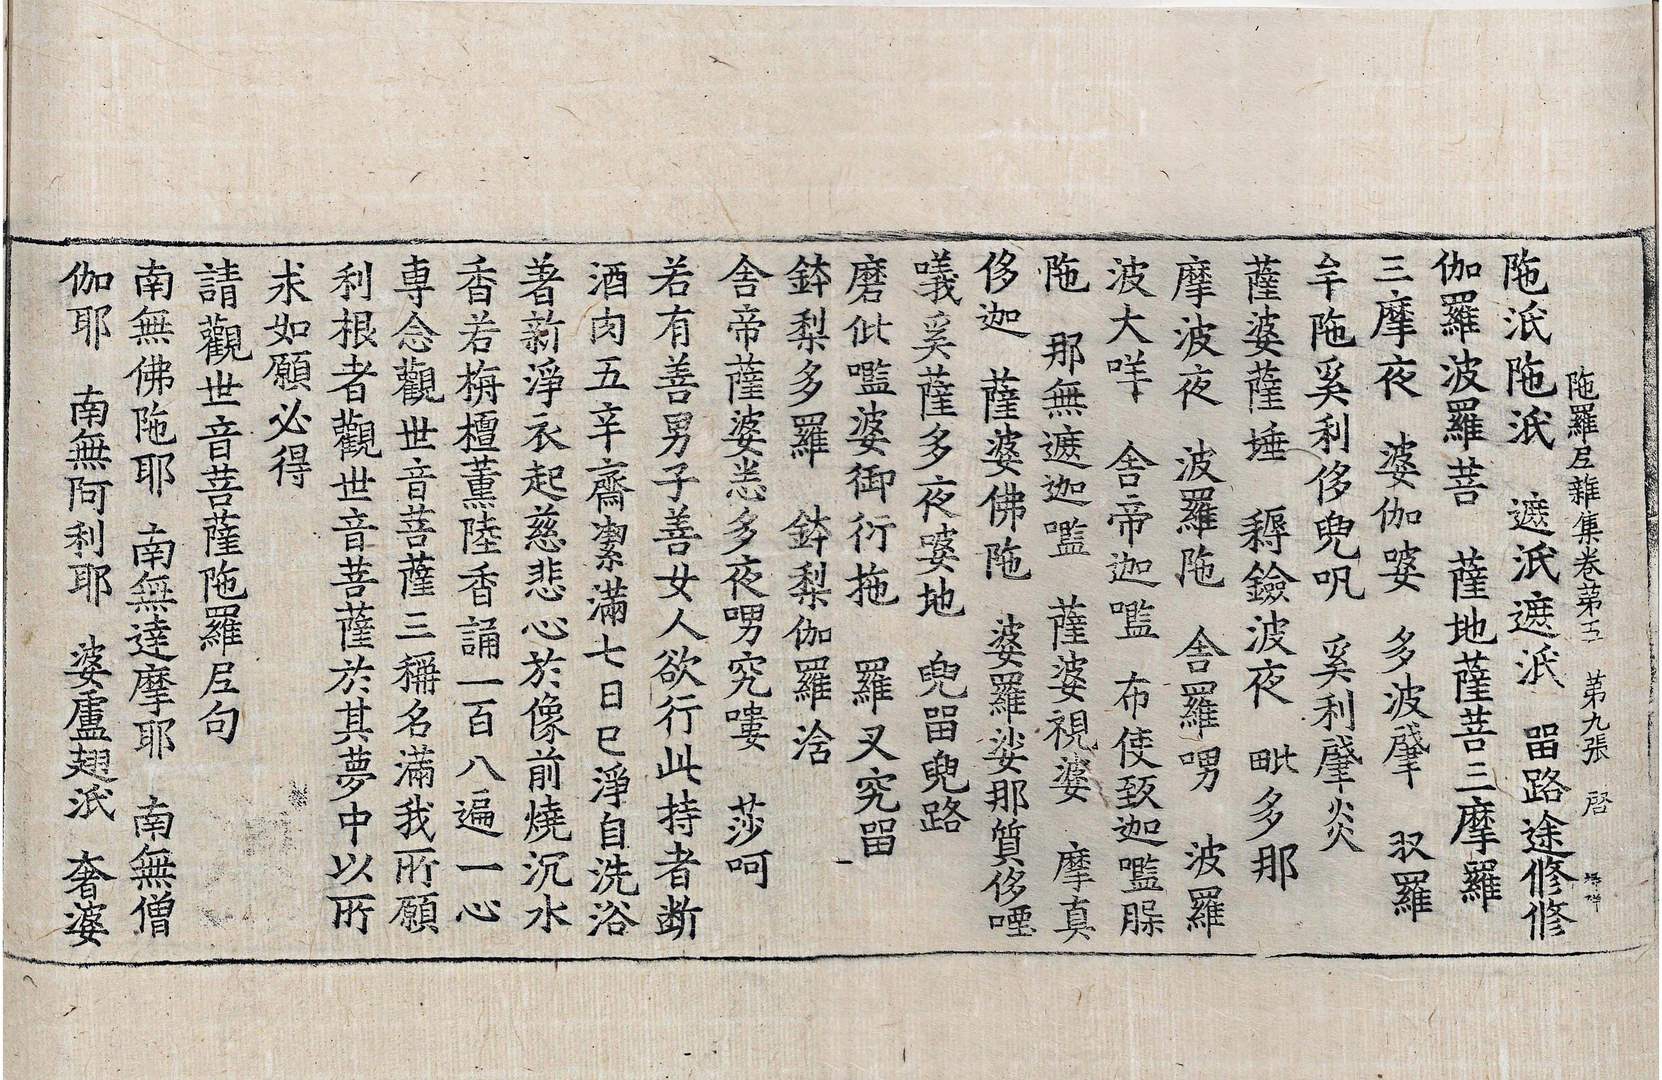 陁羅尼雜集卷苐五　苐九張　啓
陁泜陁泜　遮泜遮泜　㽞路途修修
伽羅波羅菩　薩地薩菩三摩羅
三摩夜　婆伽婆　多波　羅
陁奚利侈兜呪　奚利　炎
薩婆薩埵　鎒鐱波夜　毗多那
摩波夜　波羅陁　舍羅㖠　波羅
波大哶　舍帝迦㘕　布使致迦㘕
陁　那無遮迦㘕　薩婆視婆　摩真
侈迦　薩婆佛陁　婆羅娑那質侈㗌
㕒奚薩多夜婆地　兜㽞兜路
磨仳㘕婆御衍拖　羅叉究㽞
鉢梨多羅　鉢梨伽羅㴠
舍帝薩婆恙多夜㖠究嘍　莎呵
若有善男子善女人欲行此持者斷
酒肉五辛齋潔滿七日已淨自洗浴
著新淨衣起慈悲心於像前燒沉水
香若栴檀薰陸香誦一百八遍一心
專念觀世音菩薩三稱名滿我所願
利根者觀世音菩薩於其夢中以所
求如願必得
請觀世音菩薩陁羅尼句
南無佛陁耶　南無達摩耶　南無僧
伽耶　南無阿利耶　婆盧翅泜　奢婆